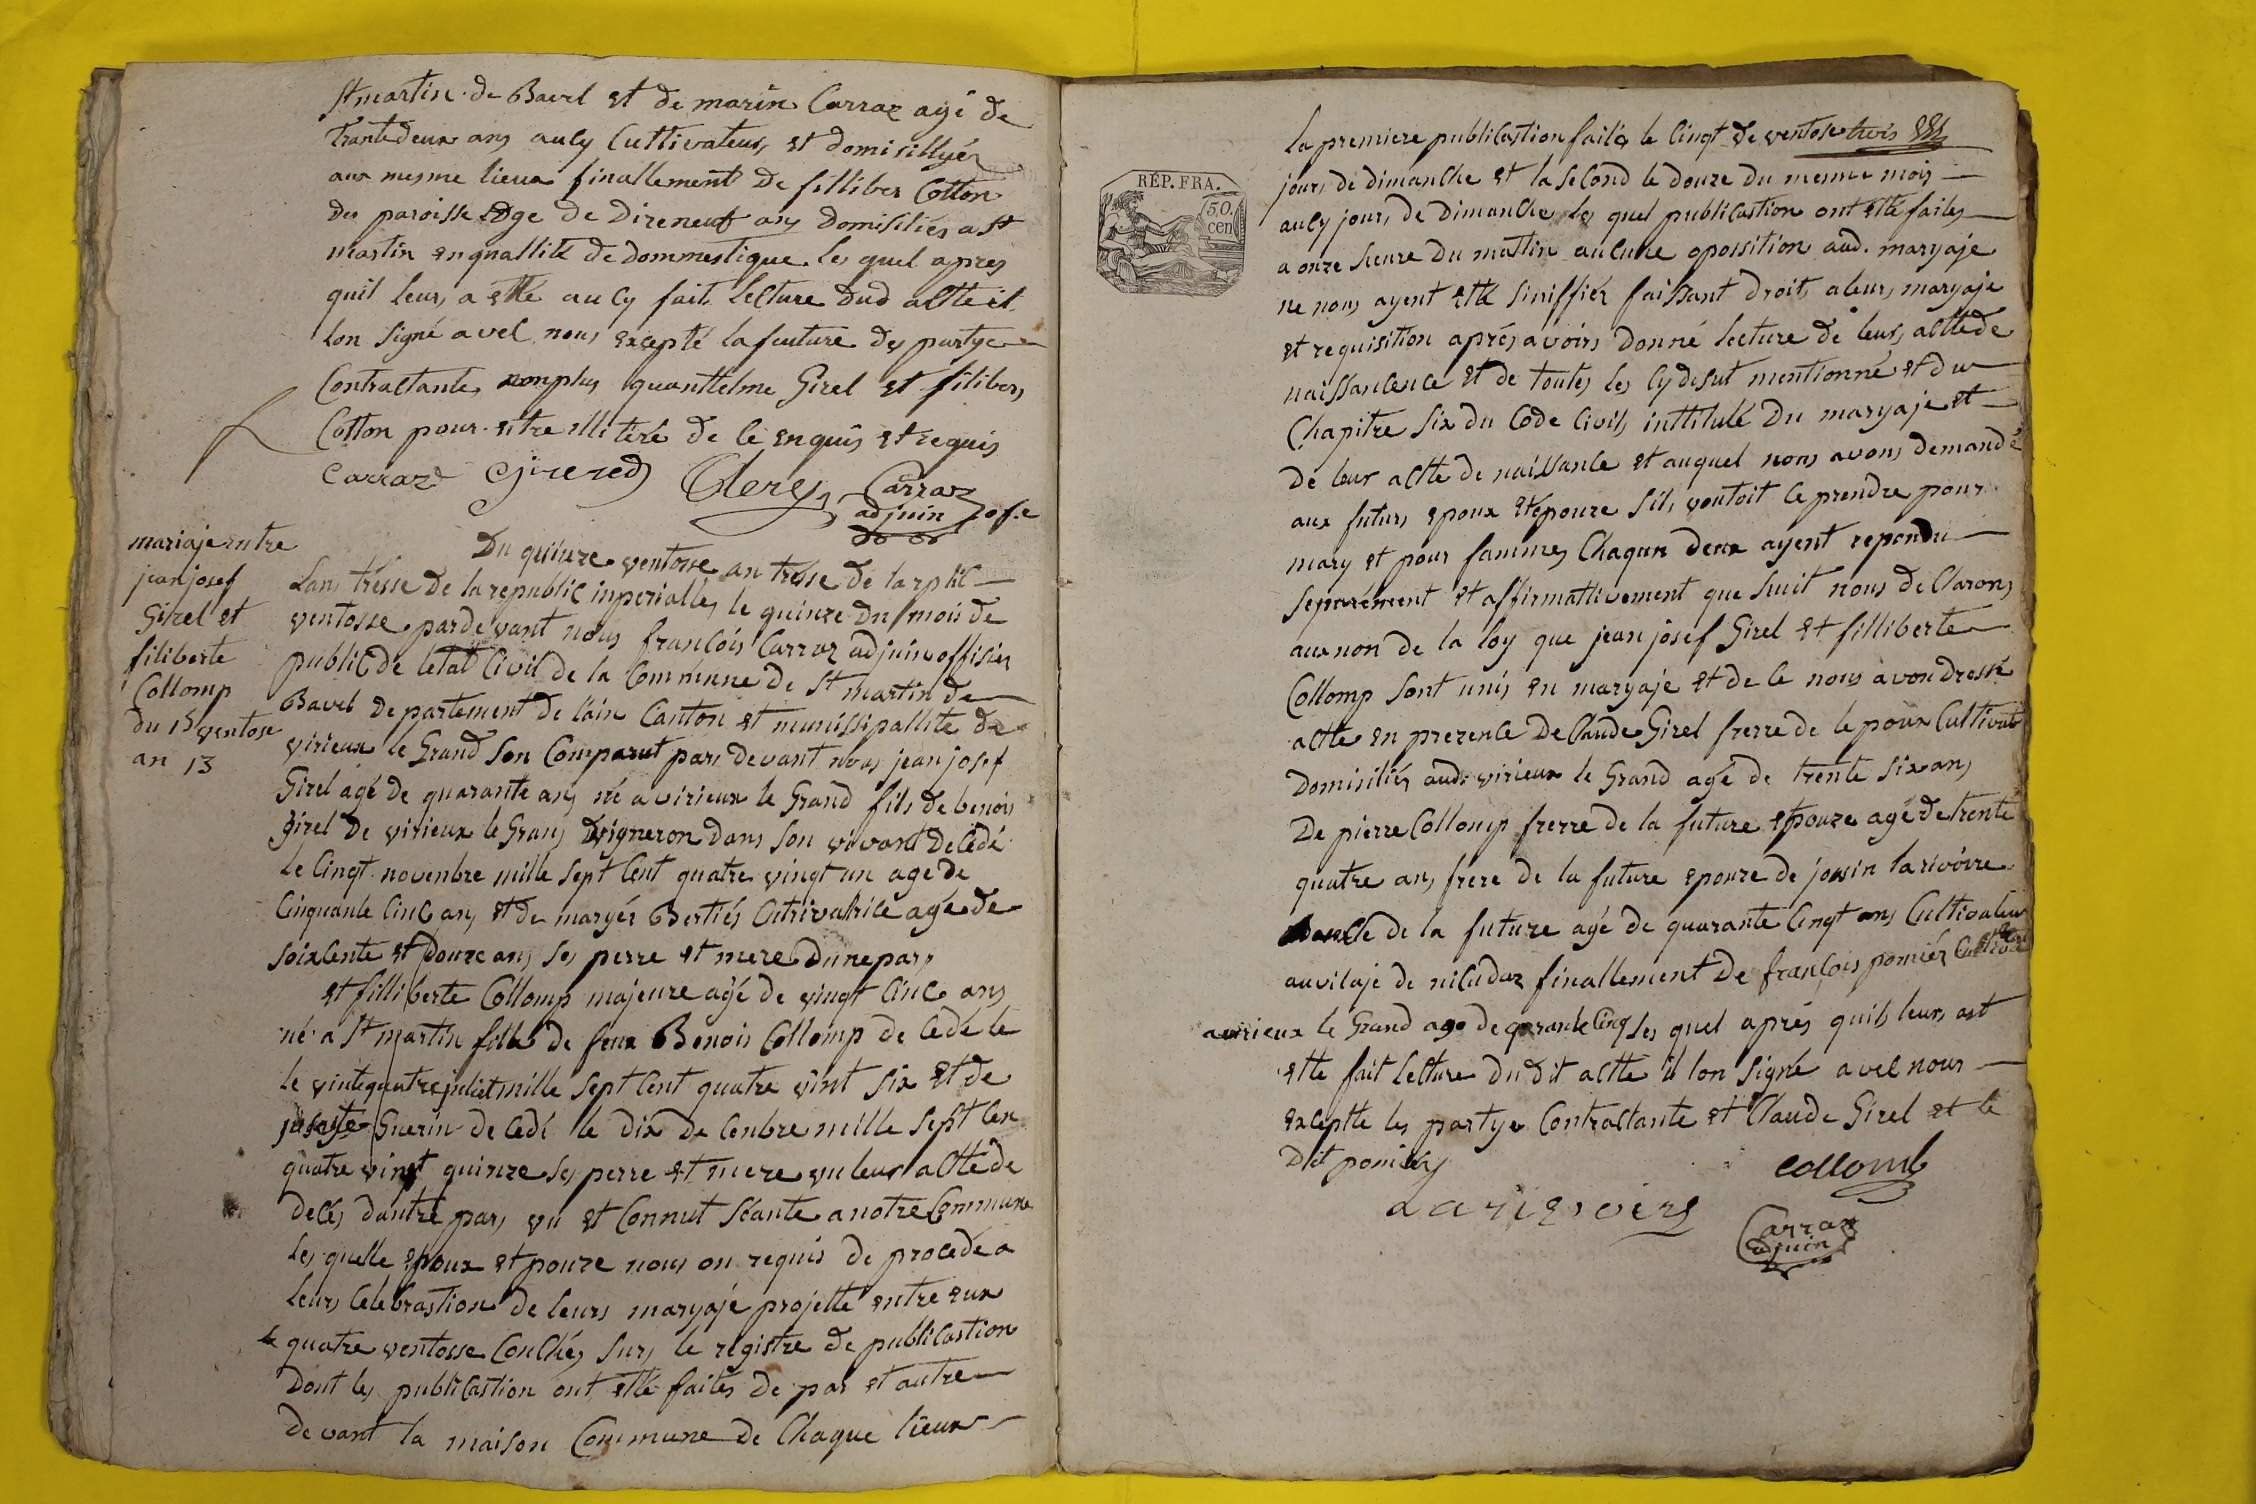 St martin de Bavel et de marin Carraz agé de
trantedeux ans aucy Cultivateur et domisillyér
aux mesme lieux finallement de filliber Cotton
du paroisse Dge de Dixneuf ans domisiliés a St
martin en quallite de dommestique les quel apres
quil leurs a ette aucy fait lecture dud actte il
lon signé avec nous excepté la future des partye
Contractante nonplus quanttelme Girel et filiber
Cotton pour estre illitéré de ce enquis et requis
Carraz Girered Clerc Carraz
adjuin ofie
mariaje entre
jean josef
Girel et
filiberte
Collomp
du 15 ventose
an 13
Du quinze ventosse an tresse de la rplic
Lans trésse de la republic inperialle, le quinze du mois de
ventosse par devant nous francois Carraz adjuin offisier
public de letat Civil de la Commune de St martin de
Bavel departement de lain Canton et munissipallite de
virieux le Grand son Comparut pars devant nous jean josef
Girel agé de quarante ans né a virieux le Grand fils de benois
Girel de virieux le Grans vigneron dans son vivant decedé
le Cingt novenbre mille sept Cent quatre vingt un age de
Cinquante Cinc ans et de maryér Bertiés Cutrivatrice agé de
soixcente et douze ans ses perre et mere dune pars
et filliberte Collomp majeure agé de vingt Cinc ans
né a St martin fille de feux Benois Collomp de Cedé le
le vintequatre juliet mille sept Cent quatre vint six et de
Guerin de Cedé le dix de Cenbre mille sept Cen
quatre vingt quinze ses perre et mere vu leur actté de
deces dautre pars vu et Connut scante a notre Commune
Les quelle epoux et pouze nous on requis de procedé a
leurs Celebrastion de leurs maryajé projetté entre eux
le quatre ventosse Couchés surs le registre de publicastion
Dont les publicastion ont etté faités de par et autre
devant la maison Commune de Chaque lieux
RÉP. FRA.
50.
cen
La premiere publicastion faité le Cingt de ventose trois
jours de dimanche et la second le douze du mesme mois
aucy jours de dimanche les quel publicastion ont etté faites
a onze heure du mattin aucune oposition aud. maryaje
ne nous ayent etté siniffiér faissant droits a leurs maryaje
et requisition aprés avoirs donné lecture de leurs actte de
naissancence et de toutes les cy desut mentionné et du
Chapitre six du Code Civils inttitulé du maryaje et
de leur actte de naissance et auquel nous avons demandé
aux futurs epoux et epouze sils voutoit ce prendre pour
mary et pour fammes Chaqun deux ayent repondu
separément et affirmattivement que suit nous declarons
aux non de la loy que jean josef Girel et filliberte
Collomp sont unis en maryaje et de ce nous avon dressé
actte en prezence de Claude Girel frerre de lepoux Cultivat
Domisiliés aud. virieux le Grand agé de trente six ans
De pierre Collomp frerre de la future epouze agé de trente
quatre ans frere de la future epouze de jossin larivoire
de la future agé de quarante Cingt ans Cultivateur
au vilaje de finallement de francois pomiér Cultivat
avirieux le Grand age de qarante Cinq les quel aprés quils leurs ast
ette fait lecture du dit actte il lon signé avec nous
exceptté les partye Contractante et Claude Girel et le
Dit pomiér
collomb
Larievoire
Carraz
adjuin